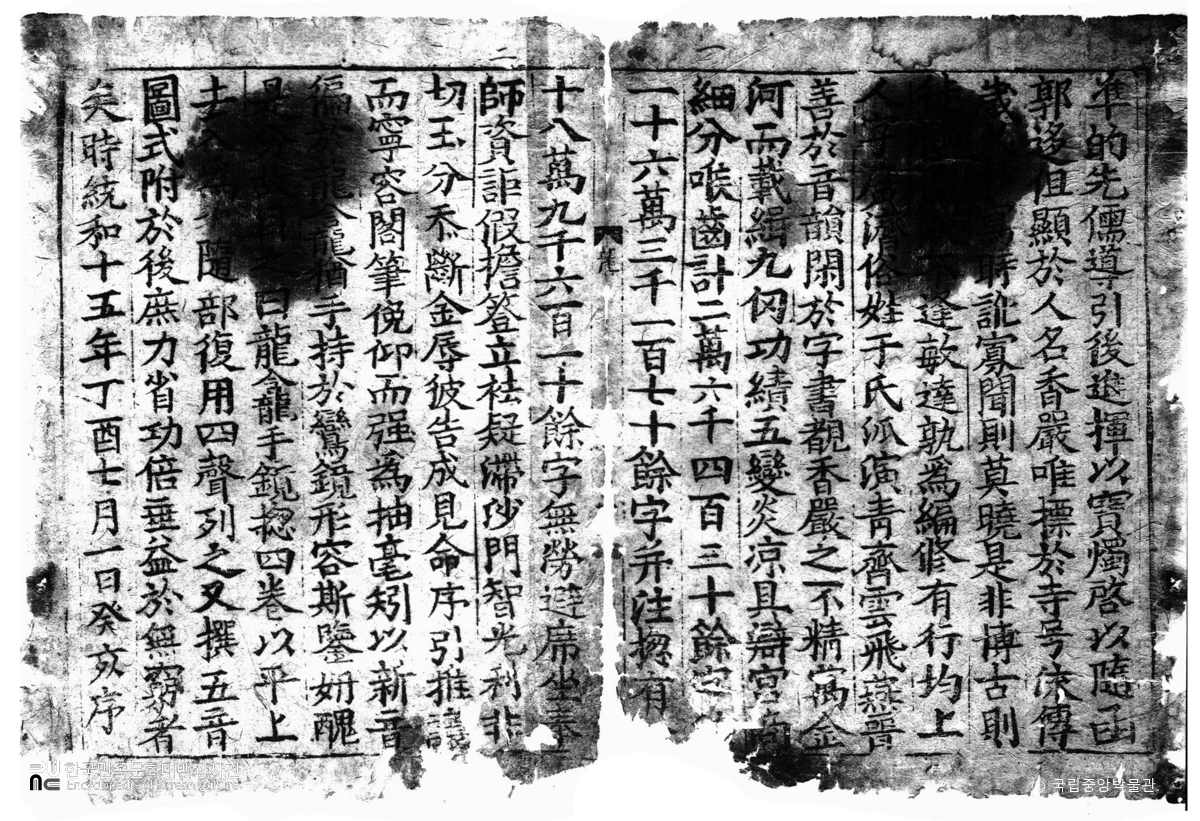 一
准的先儒導引後進揮以寶燭啓以隨函
郭迻但顯於人名香嚴唯標於寺号流傳
歲寫時訛寡聞則莫曉是非博古則
不逢敏達孰為編修有行均上
人字廣濟俗姓于氏派演青齊雲飛燕晉
善於音韻閑於字書覩香嚴之不精寓金
河而載緝九仭功績五變炎凉具辯宮商
細分喉齒計二萬六千四百三十餘字
一十六萬三千一百七十餘字并注揔有
二
十八萬九千六百一十餘字無勞避席坐奉
師資詎假擔簦立袪疑滯沙門智光利非
切玉分忝斷金辱彼告成見命序引推讓
而寧容閣筆俛仰而强為抽毫矧以新音
徧於龍龕猶手持於鸞鏡形容斯鑒妍醜
是分故目之曰龍龕手鏡揔四卷以平上
去入為次隨部復用四聲列之又撰五音
圖式附於後庶力省功倍垂益於無窮者
矣時統和十五年丁酉七月一日癸亥序
한국민족문화대백과사전
Encyclopedia of Korean Culture
국립중앙박물관